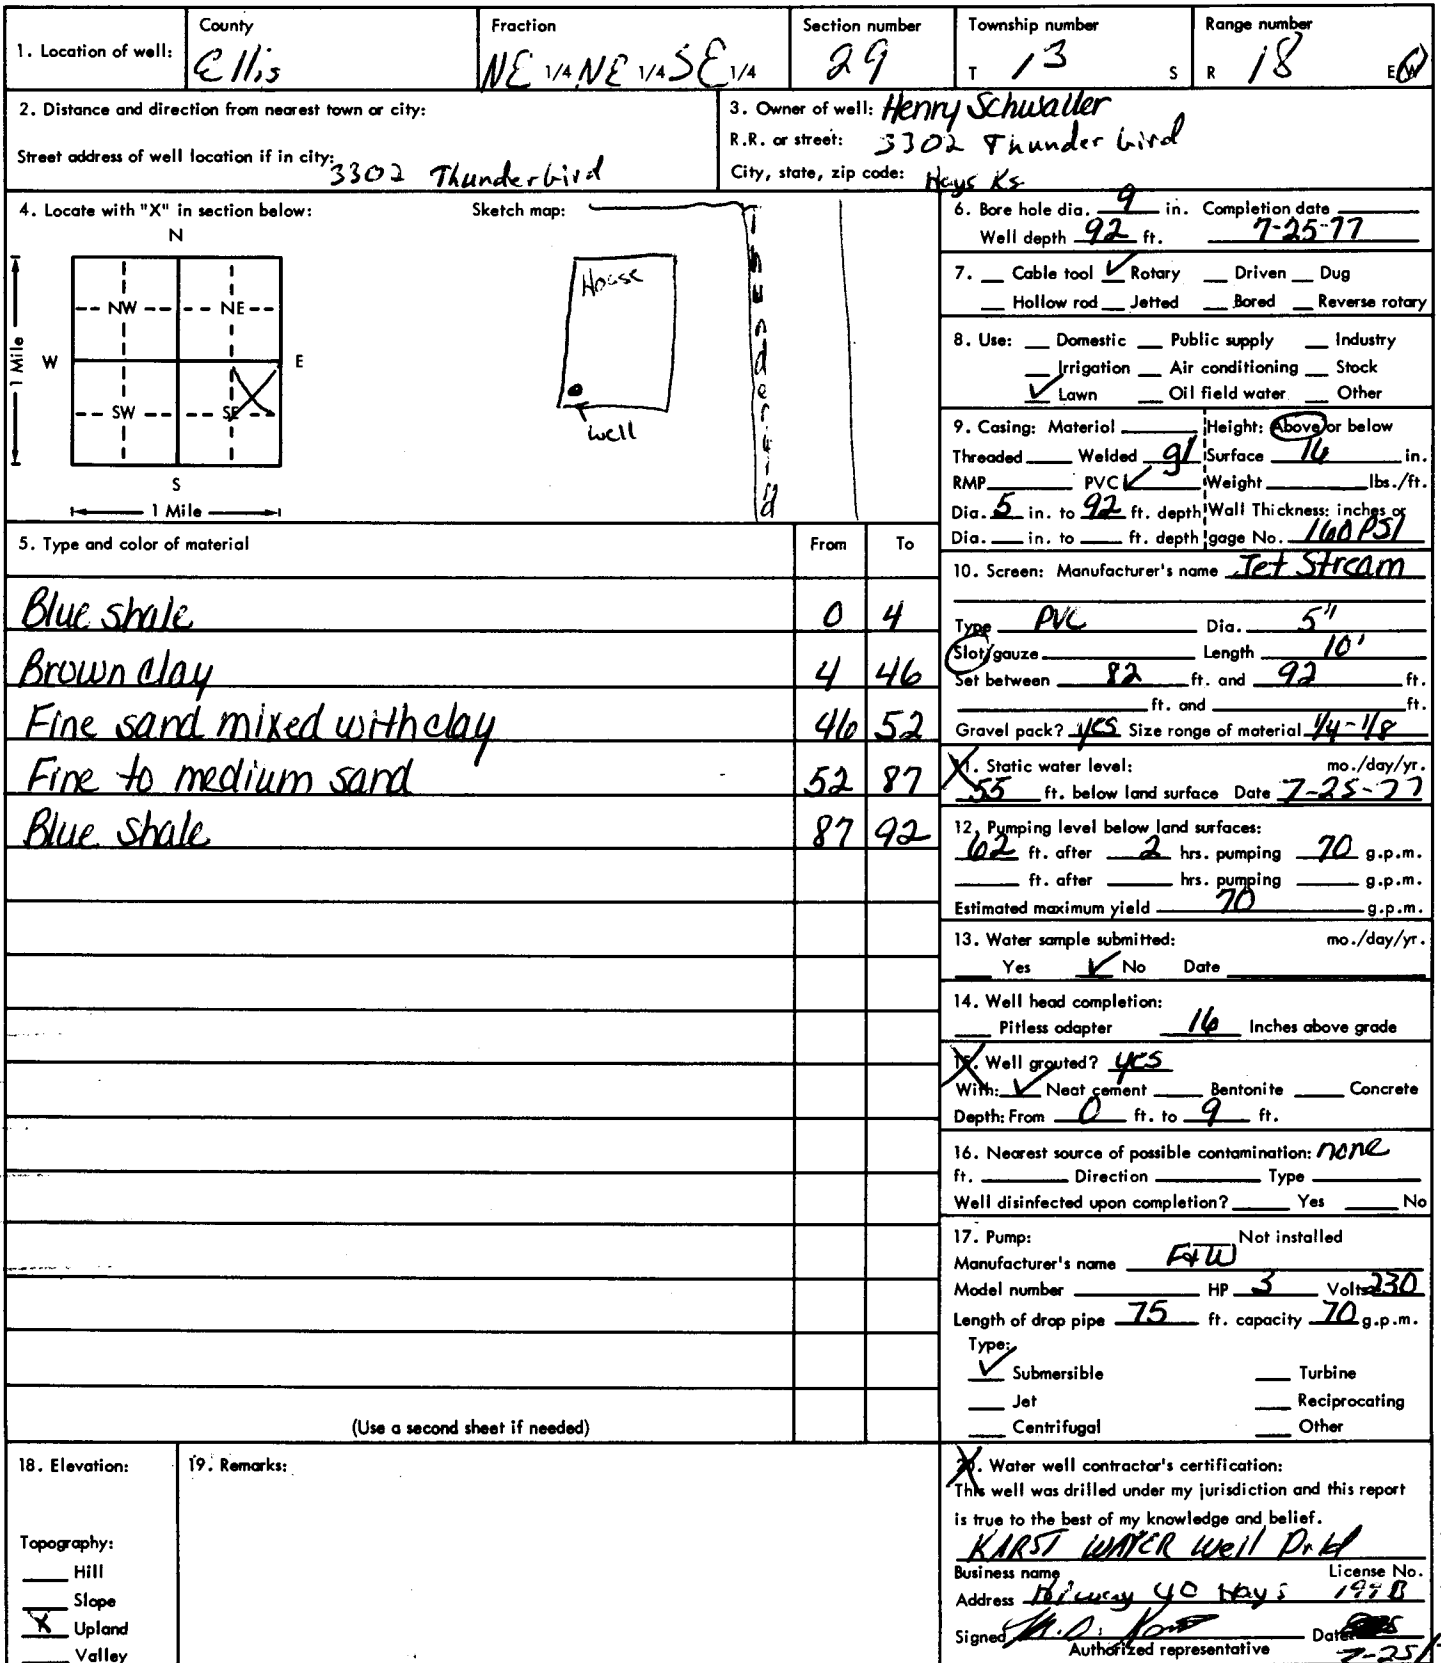 1. Location of well: County Ellis Fraction NE 1/4 NE 1/4 SE 1/4 Section number 29 Township number T 13 S Range number R 18 E W
2. Distance and direction from nearest town or city:
Street address of well location if in city: 3302 Thunderbird
3. Owner of well: Henry Schwaller
R.R. or street: 3302 Thunderbird
City, state, zip code: Hays Ks
4. Locate with "X" in section below:
N
NW NE
W E
SW SE
S
1 Mile
1 Mile
Sketch map:
House
well
Thunderbird
5. Type and color of material From To
Blue shale 0 4
Brown clay 4 46
Fine sand mixed with clay 46 52
Fine to medium sand 52 87
Blue shale 87 92
(Use a second sheet if needed)
6. Bore hole dia. 9 in. Completion date
Well depth 92 ft. 7-25-77
7. Cable tool ✓ Rotary Driven Dug
Hollow rod Jetted Bored Reverse rotary
8. Use: Domestic Public supply Industry
Irrigation Air conditioning Stock
✓ Lawn Oil field water Other
9. Casing: Material Height: Above or below
Threaded Welded gl Surface 16 in.
RMP PVC ✓ Weight lbs./ft.
Dia. 5 in. to 92 ft. depth Wall Thickness: inches or
Dia. in. to ft. depth gage No. 160 PSI
10. Screen: Manufacturer's name Jet Stream
Type PVC Dia. 5"
Slot/gauze Length 10'
Set between 82 ft. and 92 ft.
ft. and ft.
Gravel pack? yes Size range of material 1/4-1/8
11. Static water level: mo./day/yr.
55 ft. below land surface Date 7-25-77
12. Pumping level below land surfaces:
62 ft. after 2 hrs. pumping 70 g.p.m.
ft. after hrs. pumping g.p.m.
Estimated maximum yield 70 g.p.m.
13. Water sample submitted: mo./day/yr.
Yes ✓ No Date
14. Well head completion:
Pitless adapter 16 Inches above grade
15. Well grouted? yes
With: ✓ Neat cement Bentonite Concrete
Depth: From 0 ft. to 9 ft.
16. Nearest source of possible contamination: none
ft. Direction Type
Well disinfected upon completion? Yes No
17. Pump: Not installed
Manufacturer's name F+W
Model number HP 3 Volts 230
Length of drop pipe 75 ft. capacity 70 g.p.m.
Type:
✓ Submersible Turbine
Jet Reciprocating
Centrifugal Other
18. Elevation:
Topography:
Hill
Slope
X Upland
Valley
19. Remarks:
20. Water well contractor's certification:
This well was drilled under my jurisdiction and this report
is true to the best of my knowledge and belief.
KARST WATER Well
Business name License No.
Address Hiway 40 Hays 199B
Signed Date
Authorized representative 7-25